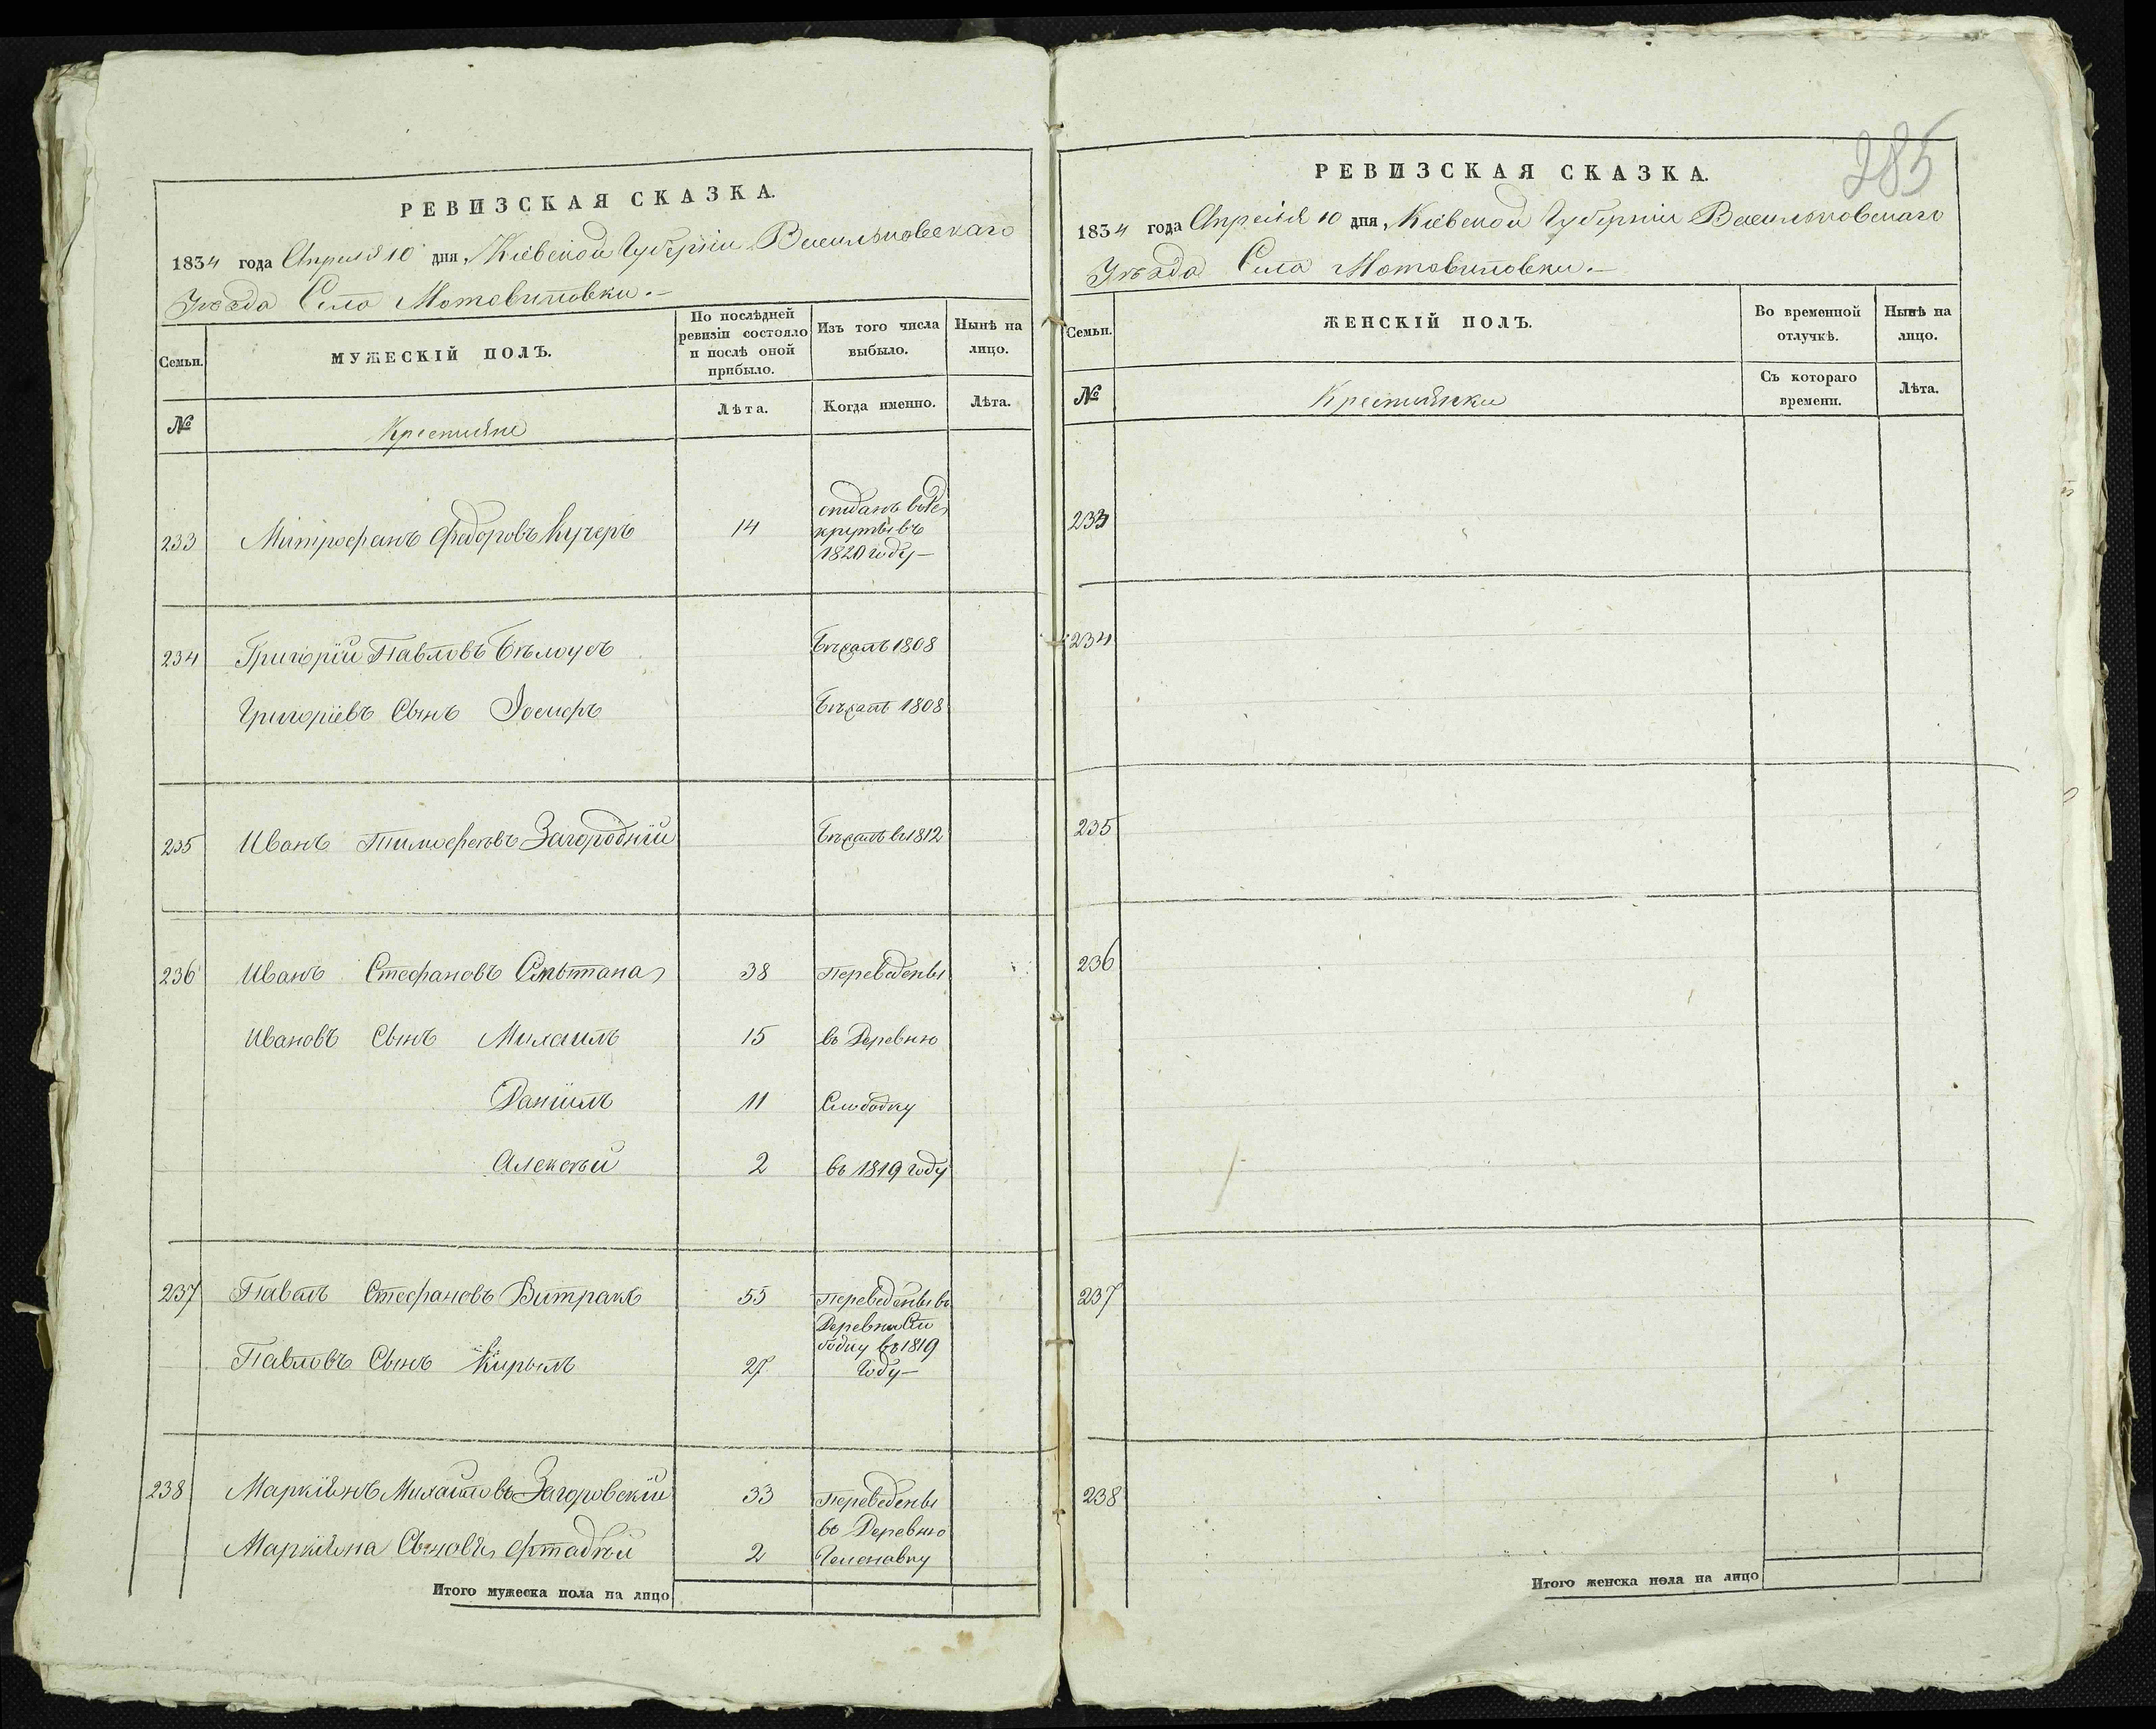 РЕВИЗСКАЯ СКАЗКА.
1834 года Апреля 10 дня, Кіевской Губерніи Васильковскаго
Уѣзда Села Мотовиловки.—
Семьи.
МУЖЕСКІЙ ПОЛЪ.
По послѣдней
ревизіи состояло
и послѣ оной
прибыло.
Изъ того числа
выбыло.
Нынѣ на
лицо.
№
Крестьяне
Лѣта.
Когда именно.
Лѣта.
233 Митрофанъ Федоровъ Кучеръ 14
отданъ въ Ре
круты въ
1820 году—
234 Григорій Павловъ Бѣлоусъ Бѣжалъ 1808
Григоріевъ Сынъ Іосифъ Бѣжалъ 1808
235 Иванъ Тимофеевъ Загородній Бѣжалъ в 1812
236 Иванъ Стефановъ Смѣтана 38 Переведены
Ивановъ Сынъ Михаилъ 15 въ Деревню
Даніилъ 11 Слободку
Алексѣй 2 въ 1819 году
237 Павелъ Стефановъ Витракъ 55 Переведены въ
Деревню Сло
бодку въ 1819
Павловъ Сынъ Кирылъ 27 Году—
238 Маркіянъ Михайловъ Загоровскій 33 Переведены
въ Деревню
Маркіяна Сыновъ Фтадѣй 2
Итого мужеска пола на лицо
285
РЕВИЗСКАЯ СКАЗКА.
1834 года Апреля 10 дня, Кіевской Губерніи Васильковскаго
Уѣзда Села Мотовиловки.—
Семьи.
ЖЕНСКІЙ ПОЛЪ.
Во временной
отлучкѣ.
Нынѣ на
лицо.
№
Крестьянки
Съ котораго
времени.
Лѣта.
233
234
235
236
237
238
Итого женска пола на лицо